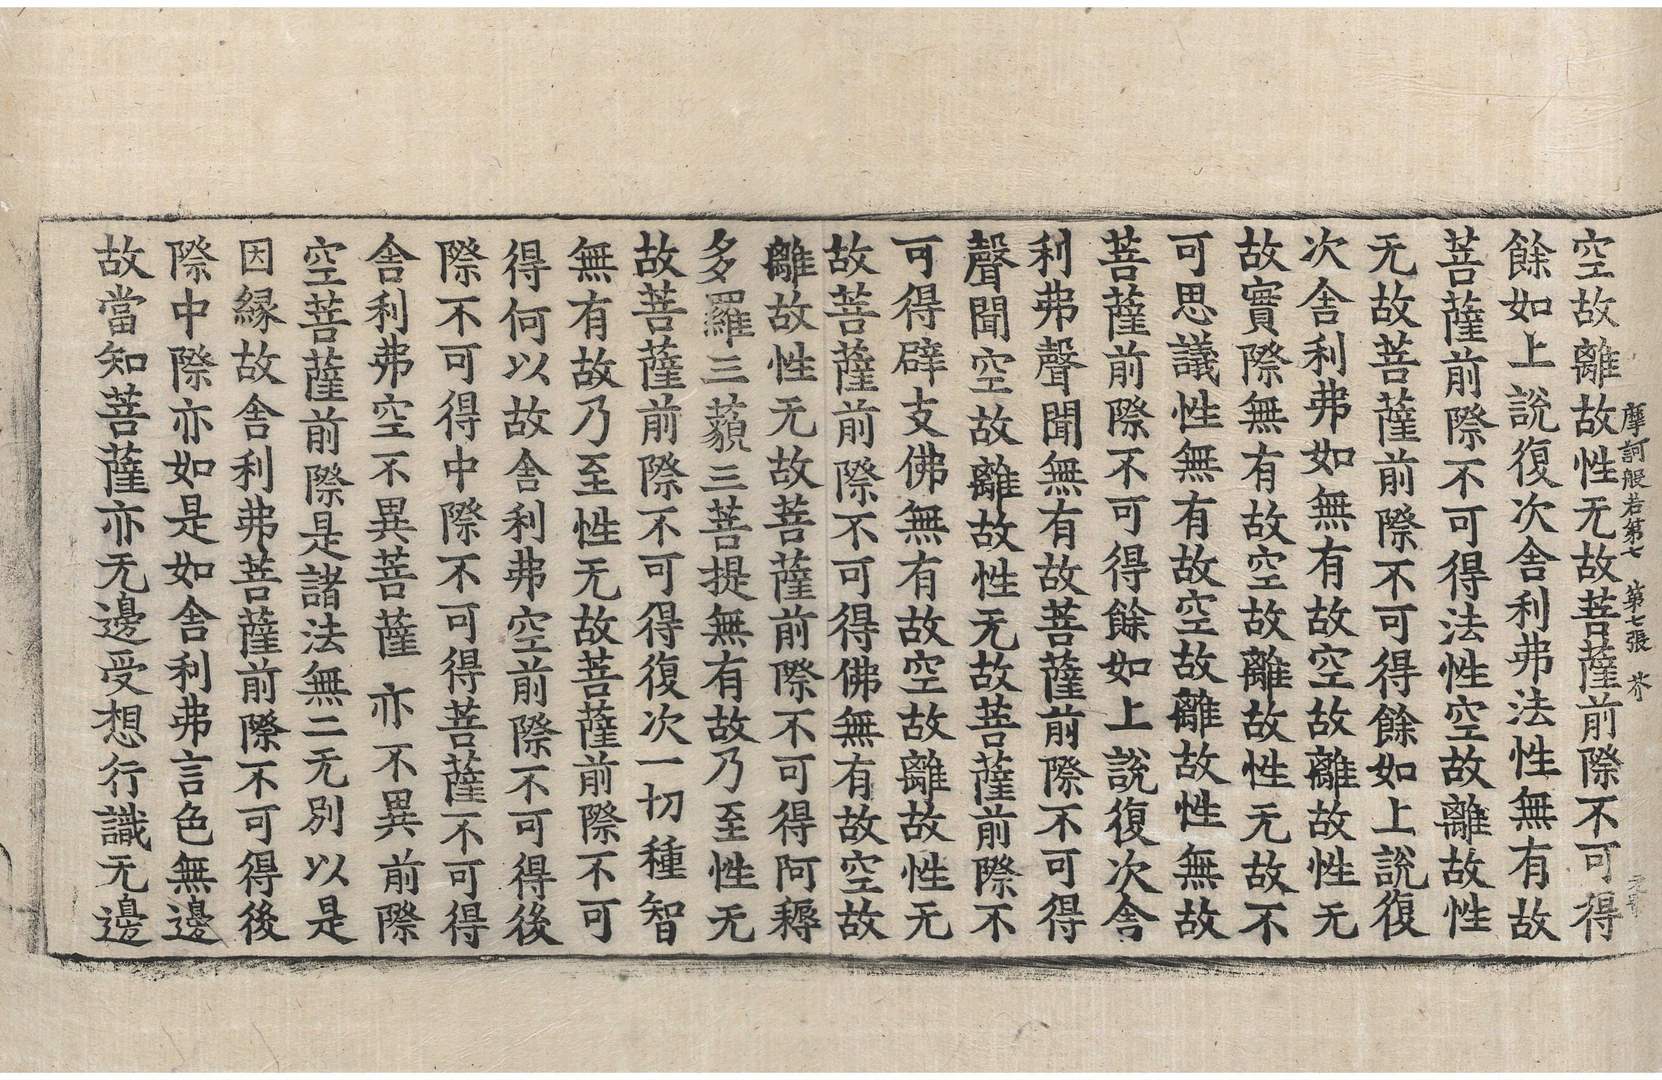 摩訶般若第七 第七張 芥
空故離故性无故菩薩前際不可得
餘如上說復次舍利弗法性無有故
菩薩前際不可得法性空故離故性
无故菩薩前際不可得餘如上說復
次舍利弗如無有故空故離故性无
故實際無有故空故離故性无故不
可思議性無有故空故離故性無故
菩薩前際不可得餘如上說復次舍
利弗聲聞無有故菩薩前際不可得
聲聞空故離故性无故菩薩前際不
可得辟支佛無有故空故離故性无
故菩薩前際不可得佛無有故空故
離故性无故菩薩前際不可得阿耨
多羅三藐三菩提無有故乃至性无
故菩薩前際不可得復次一切種智
無有故乃至性无故菩薩前際不可
得何以故舍利弗空前際不可得後
際不可得中際不可得菩薩不可得
舍利弗空不異菩薩亦不異前際
空菩薩前際是諸法無二无別以是
因緣故舍利弗菩薩前際不可得後
際中際亦如是如舍利弗言色無邊
故當知菩薩亦无邊受想行識无邊